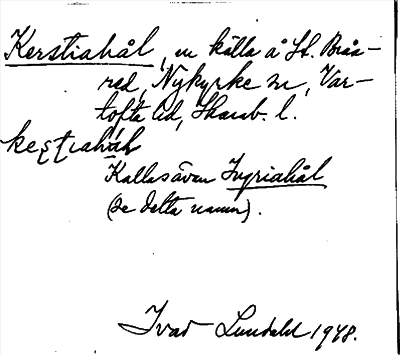 Kerstiahål, en källa å St. Brås-
red, Nykyrke sn, Var-
tofta hd, Skarab. l.
kestiahål
Kallas även Ingriahål
(se detta namn).
Ivar Lundahl 1948.